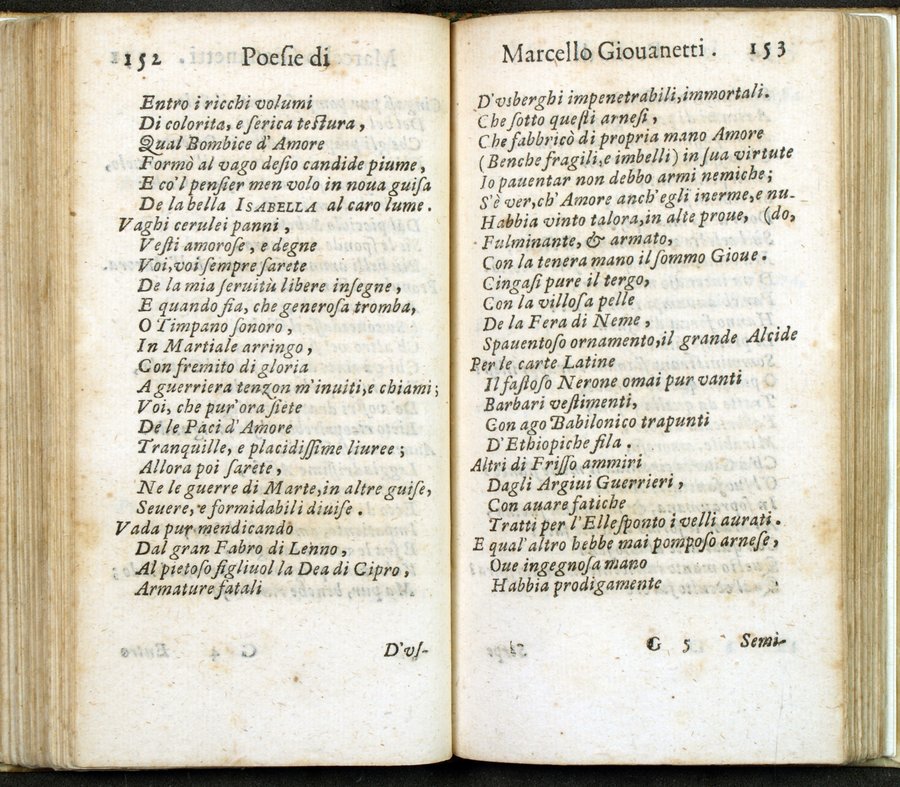 152 Poesie di
Entro i ricchi volumi
Di colorita, e serica testura,
Qual Bombice d'Amore
Formò al vago desio candide piume,
E co'l pensier men volo in noua guisa
De la bella ISABELLA al caro lume.
Vaghi cerulei panni,
Vesti amorose, e degne
Voi, voi sempre sarete
De la mia seruitù libere insegne,
E quando fia, che generosa tromba,
O Timpano sonoro,
In Martiale arringo,
Con fremito di gloria
A guerriera tenzon m'inuiti, e chiami;
Voi, che pur'ora siete
De le Paci d'Amore
Tranquille, e placidissime liuree;
Allora poi sarete,
Ne le guerre di Marte, in altre guise,
Seuere, e formidabili diuise.
Vada pur mendicando
Dal gran Fabro di Lenno,
Al pietoso figliuol la Dea di Cipro,
Armature fatali
D'vs-
Marcello Giouanetti. 153
D'vsberghi impenetrabili, immortali.
Che sotto questi arnesi,
Che fabbricò di propria mano Amore
(Benche fragili, e imbelli) in sua virtute
Io pauentar non debbo armi nemiche;
S'è ver, ch'Amore anch'egli inerme, e nu-
Habbia vinto talora, in alte proue, (do,
Fulminante, & armato,
Con la tenera mano il sommo Gioue.
Cingasi pure il tergo,
Con la villosa pelle
De la Fera di Neme,
Spauentoso ornamento, il grande Alcide
Per le carte Latine
Il fastoso Nerone omai pur vanti
Barbari vestimenti,
Con ago Babilonico trapunti
D'Ethiopiche fila.
Altri di Frisso ammiri
Dagli Argiui Guerrieri,
Con auare fatiche
Tratti per l'Ellesponto i velli aurati.
E qual'altro hebbe mai pomposo arnese,
Oue ingegnosa mano
Habbia prodigamente
G 5 Semi-